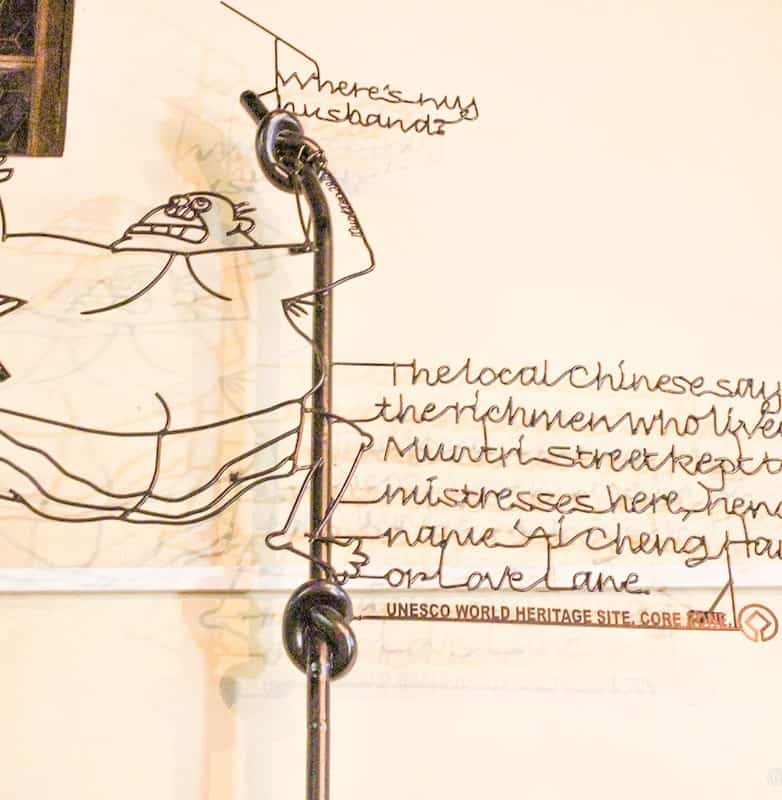 Where's my
husband?
The local Chinese say
the rich men who live
Muntri Street kept t
mistresses here, hen
name 'Ai Cheng Ha
or Love Lane.
UNESCO WORLD HERITAGE SITE, CORE ZONE.